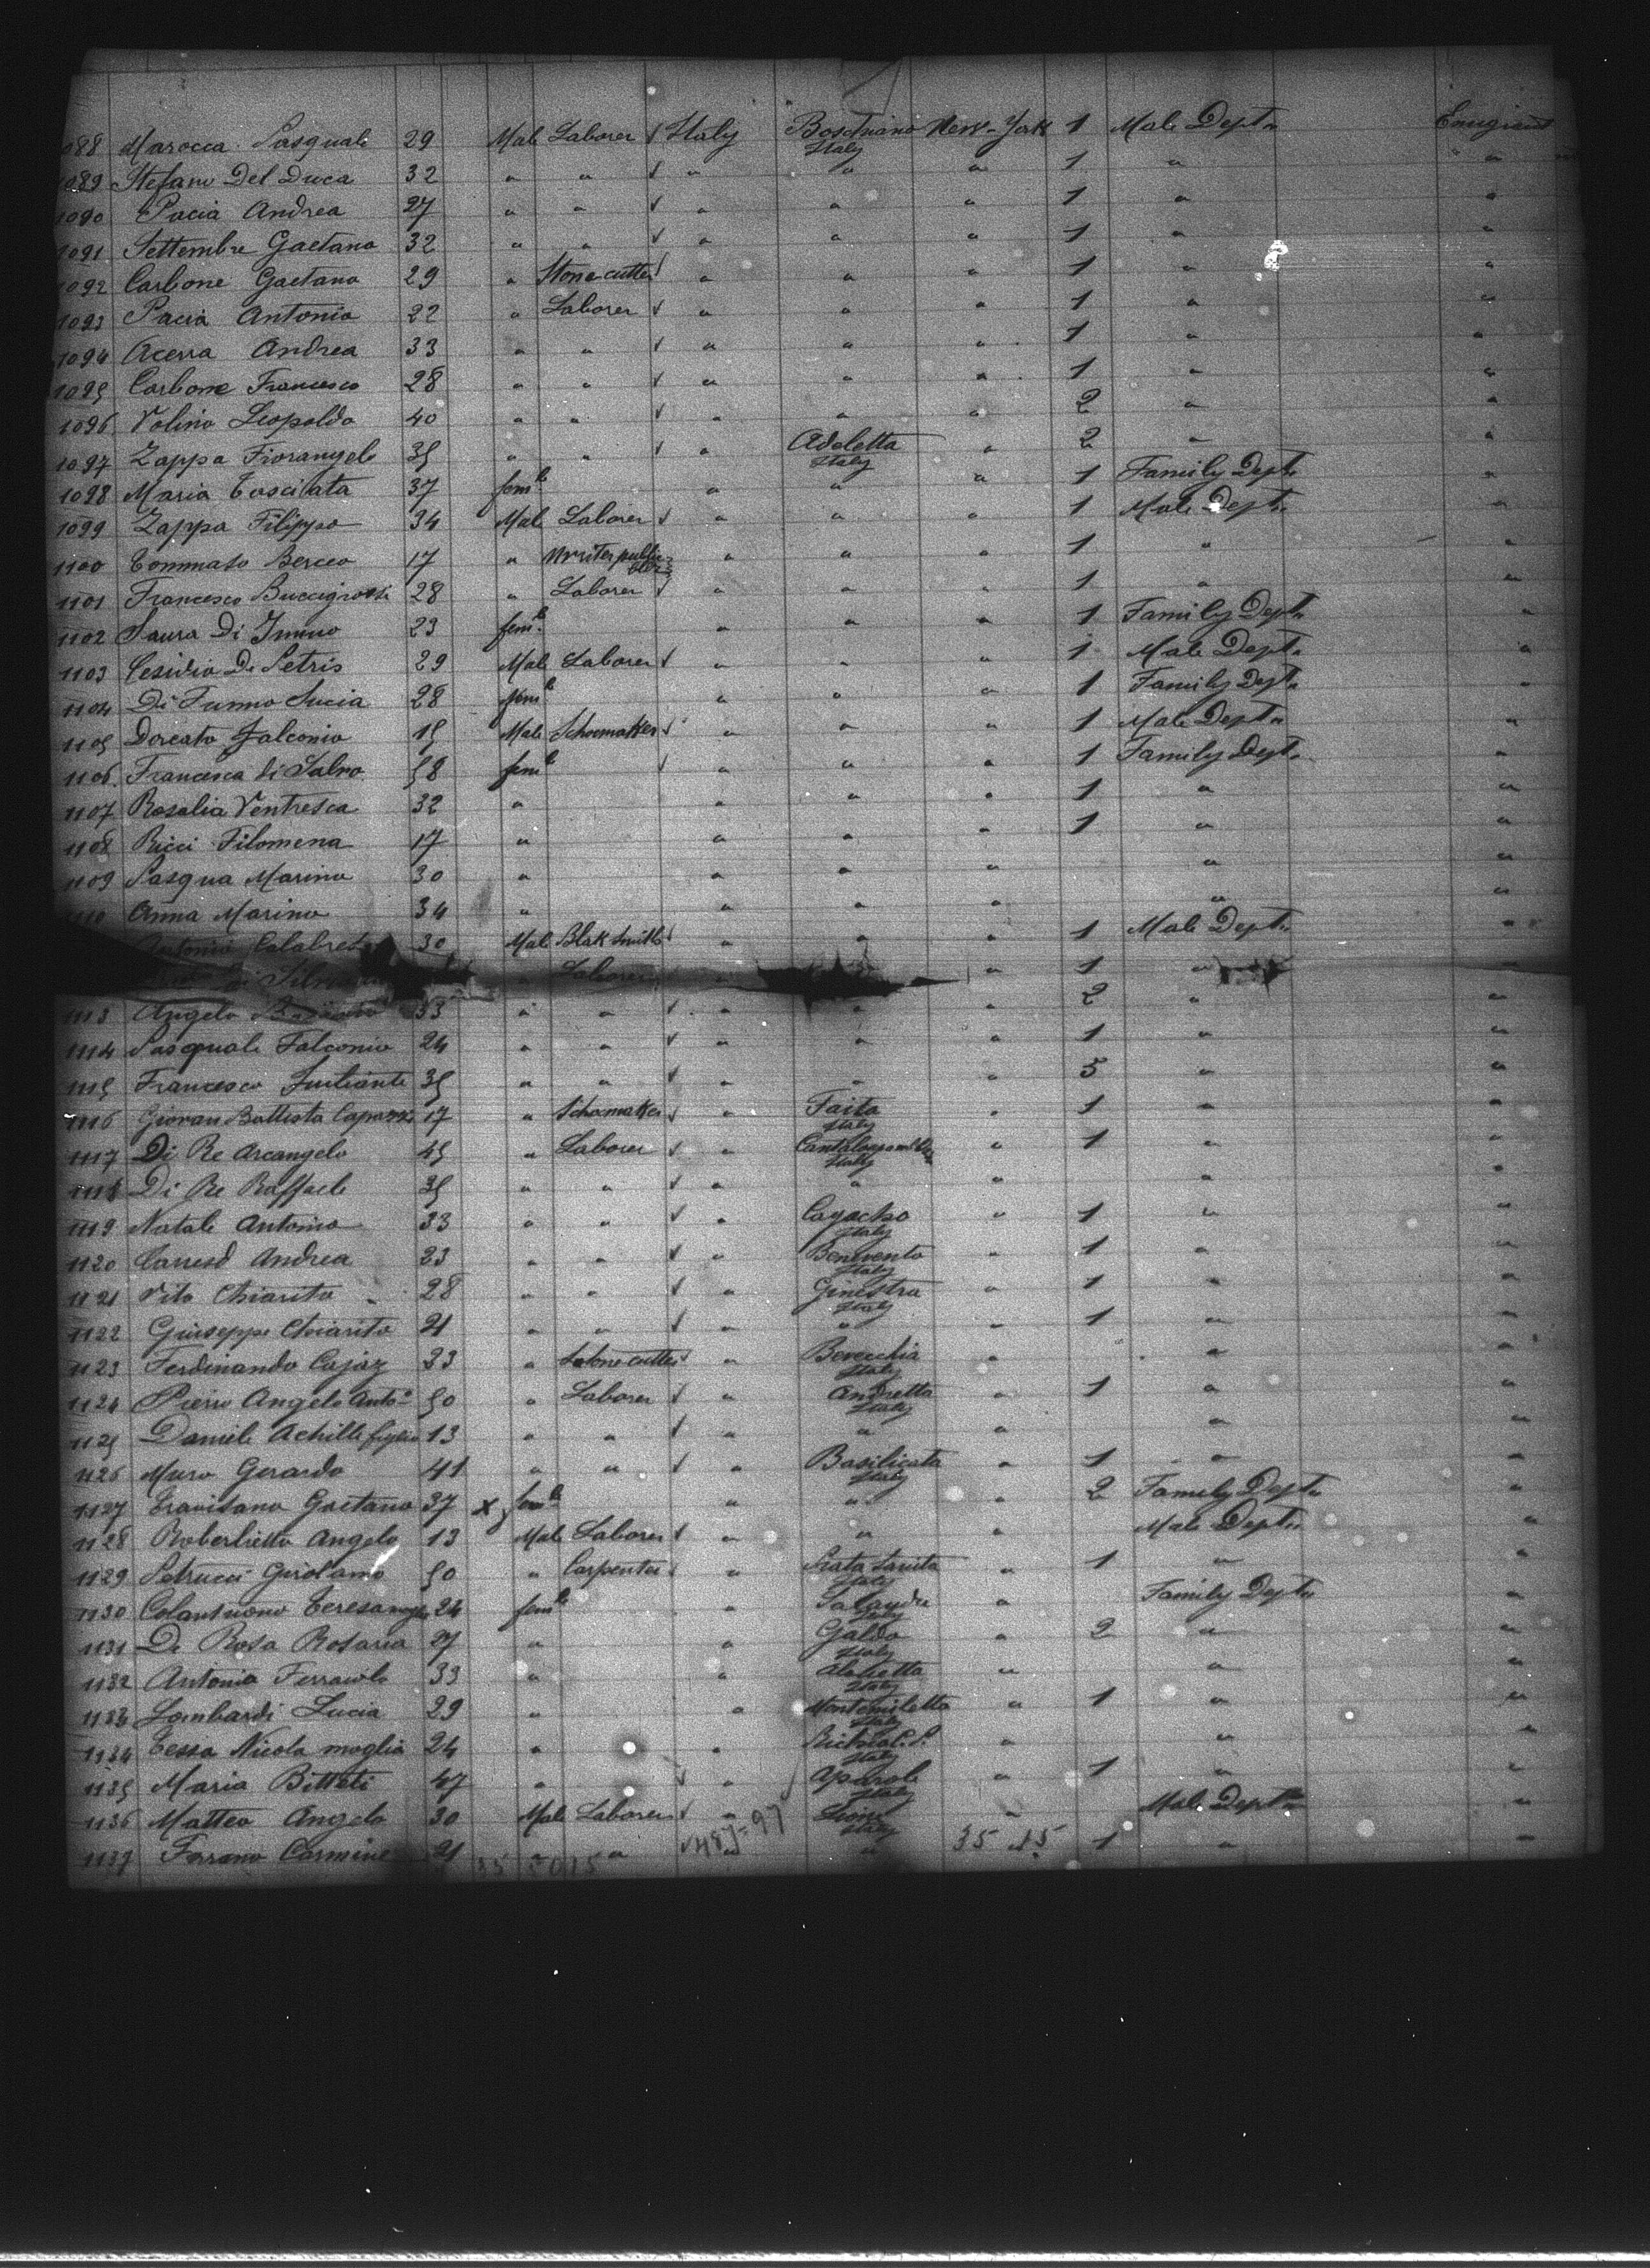 088 Marocca Pasquale 29 Male Laborer √ Italy Boschiano Italy New-York 1 Male Dept. Emigrant
1089 Stefano Del Duca 32 " " √ " " " 1 " "
1090 Pacia Andrea 27 " " √ " " " 1 " "
1091 Settembre Gaetano 32 " " √ " " " 1 " "
1092 Carbone Gaetano 29 " Stonecutter √ " " " 1 " "
1093 Pacia Antonio 22 " Laborer √ " " " 1 " "
1094 Acerra Andrea 33 " " √ " " " 1 " "
1095 Carbone Francesco 28 " " √ " " " 1 " "
1096 Volino Leopoldo 40 " " √ " " " 2 " "
1097 Zappa Fiorangelo 35 " " √ " Adeletta Italy " 2 " "
1098 Maria 37 femle " " " 1 Family Dept. "
1099 Zappa Filippo 34 Male Laborer √ " " " 1 Male Dept. "
1100 Tommaso Berceo 17 " Writer public " " " 1 " "
1101 Francesco Buccigrossi 28 " Laborer √ " " " 1 " "
1102 Laura Di 23 femle " " " 1 Family Dept. "
1103 Cesidio De Petris 29 Male Laborer √ " " " 1 Male Dept. "
1104 Di Lucia 28 femle " " " 1 Family Dept. "
1105 Donato Falconio 15 Male Schoemaker √ " " " 1 Male Dept. "
1106 Francesca di Salvo 58 femle √ " " " 1 Family Dept. "
1107 Rosalia Ventresca 32 " " " " 1 " "
1108 Ricci Filomena 17 " " " " 1 " "
1109 Pasqua Marino 30 " " " " " "
1110 Anna Marino 34 " " " " " "
Antonio Calabrese 30 Male Blak Smith √ " " " 1 Male Dept. "
Di " Laborer " " 1 " "
1113 Angelo 33 " " √ " " " 2 " "
1114 Pasquale Falconio 24 " " √ " " " 1 " "
1115 Francesco 35 " " √ " " " 5 " "
1116 Giovan Battista 17 " Schoemaker √ " Faito Italy " 1 " "
1117 Di Re Arcangelo 45 " Laborer √ " Italy " 1 " "
1118 Di Re Raffaele 35 " " √ " " " " "
1119 Natale Antonio 33 " " √ " Italy " 1 " "
1120 Andrea 23 " " √ " Benevento Italy " 1 " "
1121 Vito Chiarito 28 " " √ " Ginestra Italy " 1 " "
1122 Giuseppe Chiarito 21 " " √ " " " 1 " "
1123 Ferdinando 33 " Stonecutter √ " Italy " " "
1124 Angelo Anto 50 " Laborer √ " Andretta Italy " 1 " "
1125 Daniele Achille figlio 13 " " √ " " " " "
1126 Muro Gerardo 41 " " √ " Basilicata Italy " 1 " "
1127 Travisano Gaetano 37 x femle " " " 2 Family Dept. "
1128 Angelo 13 Male Laborer √ " " " Male Dept. "
1129 Petrucci Girolamo 50 " Carpenter √ " Italy " 1 " "
1130 Colantuono Teresa moglie 24 femle " Italy " Family Dept. "
1131 De Rosa Rosaria 27 " " Galdo Italy " 2 " "
1132 Antonia 33 " " Italy " " "
1133 Lombardi Lucia 29 " " Montemiletto Italy " 1 " "
1134 Tessa Nicola moglia 24 " " Italy " " "
1135 Maria 47 " √ " Italy " 1 " "
1136 Matteo Angelo 30 Male Laborer √ " Lioni Italy " Male Dept. "
1137 Ferrano Carmine 21 " " √ " " 1 " "